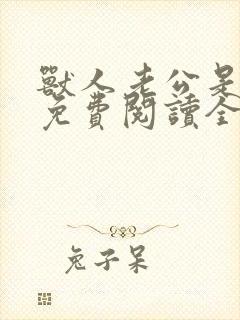 獸人老公是
免費閱讀全
兔子呆